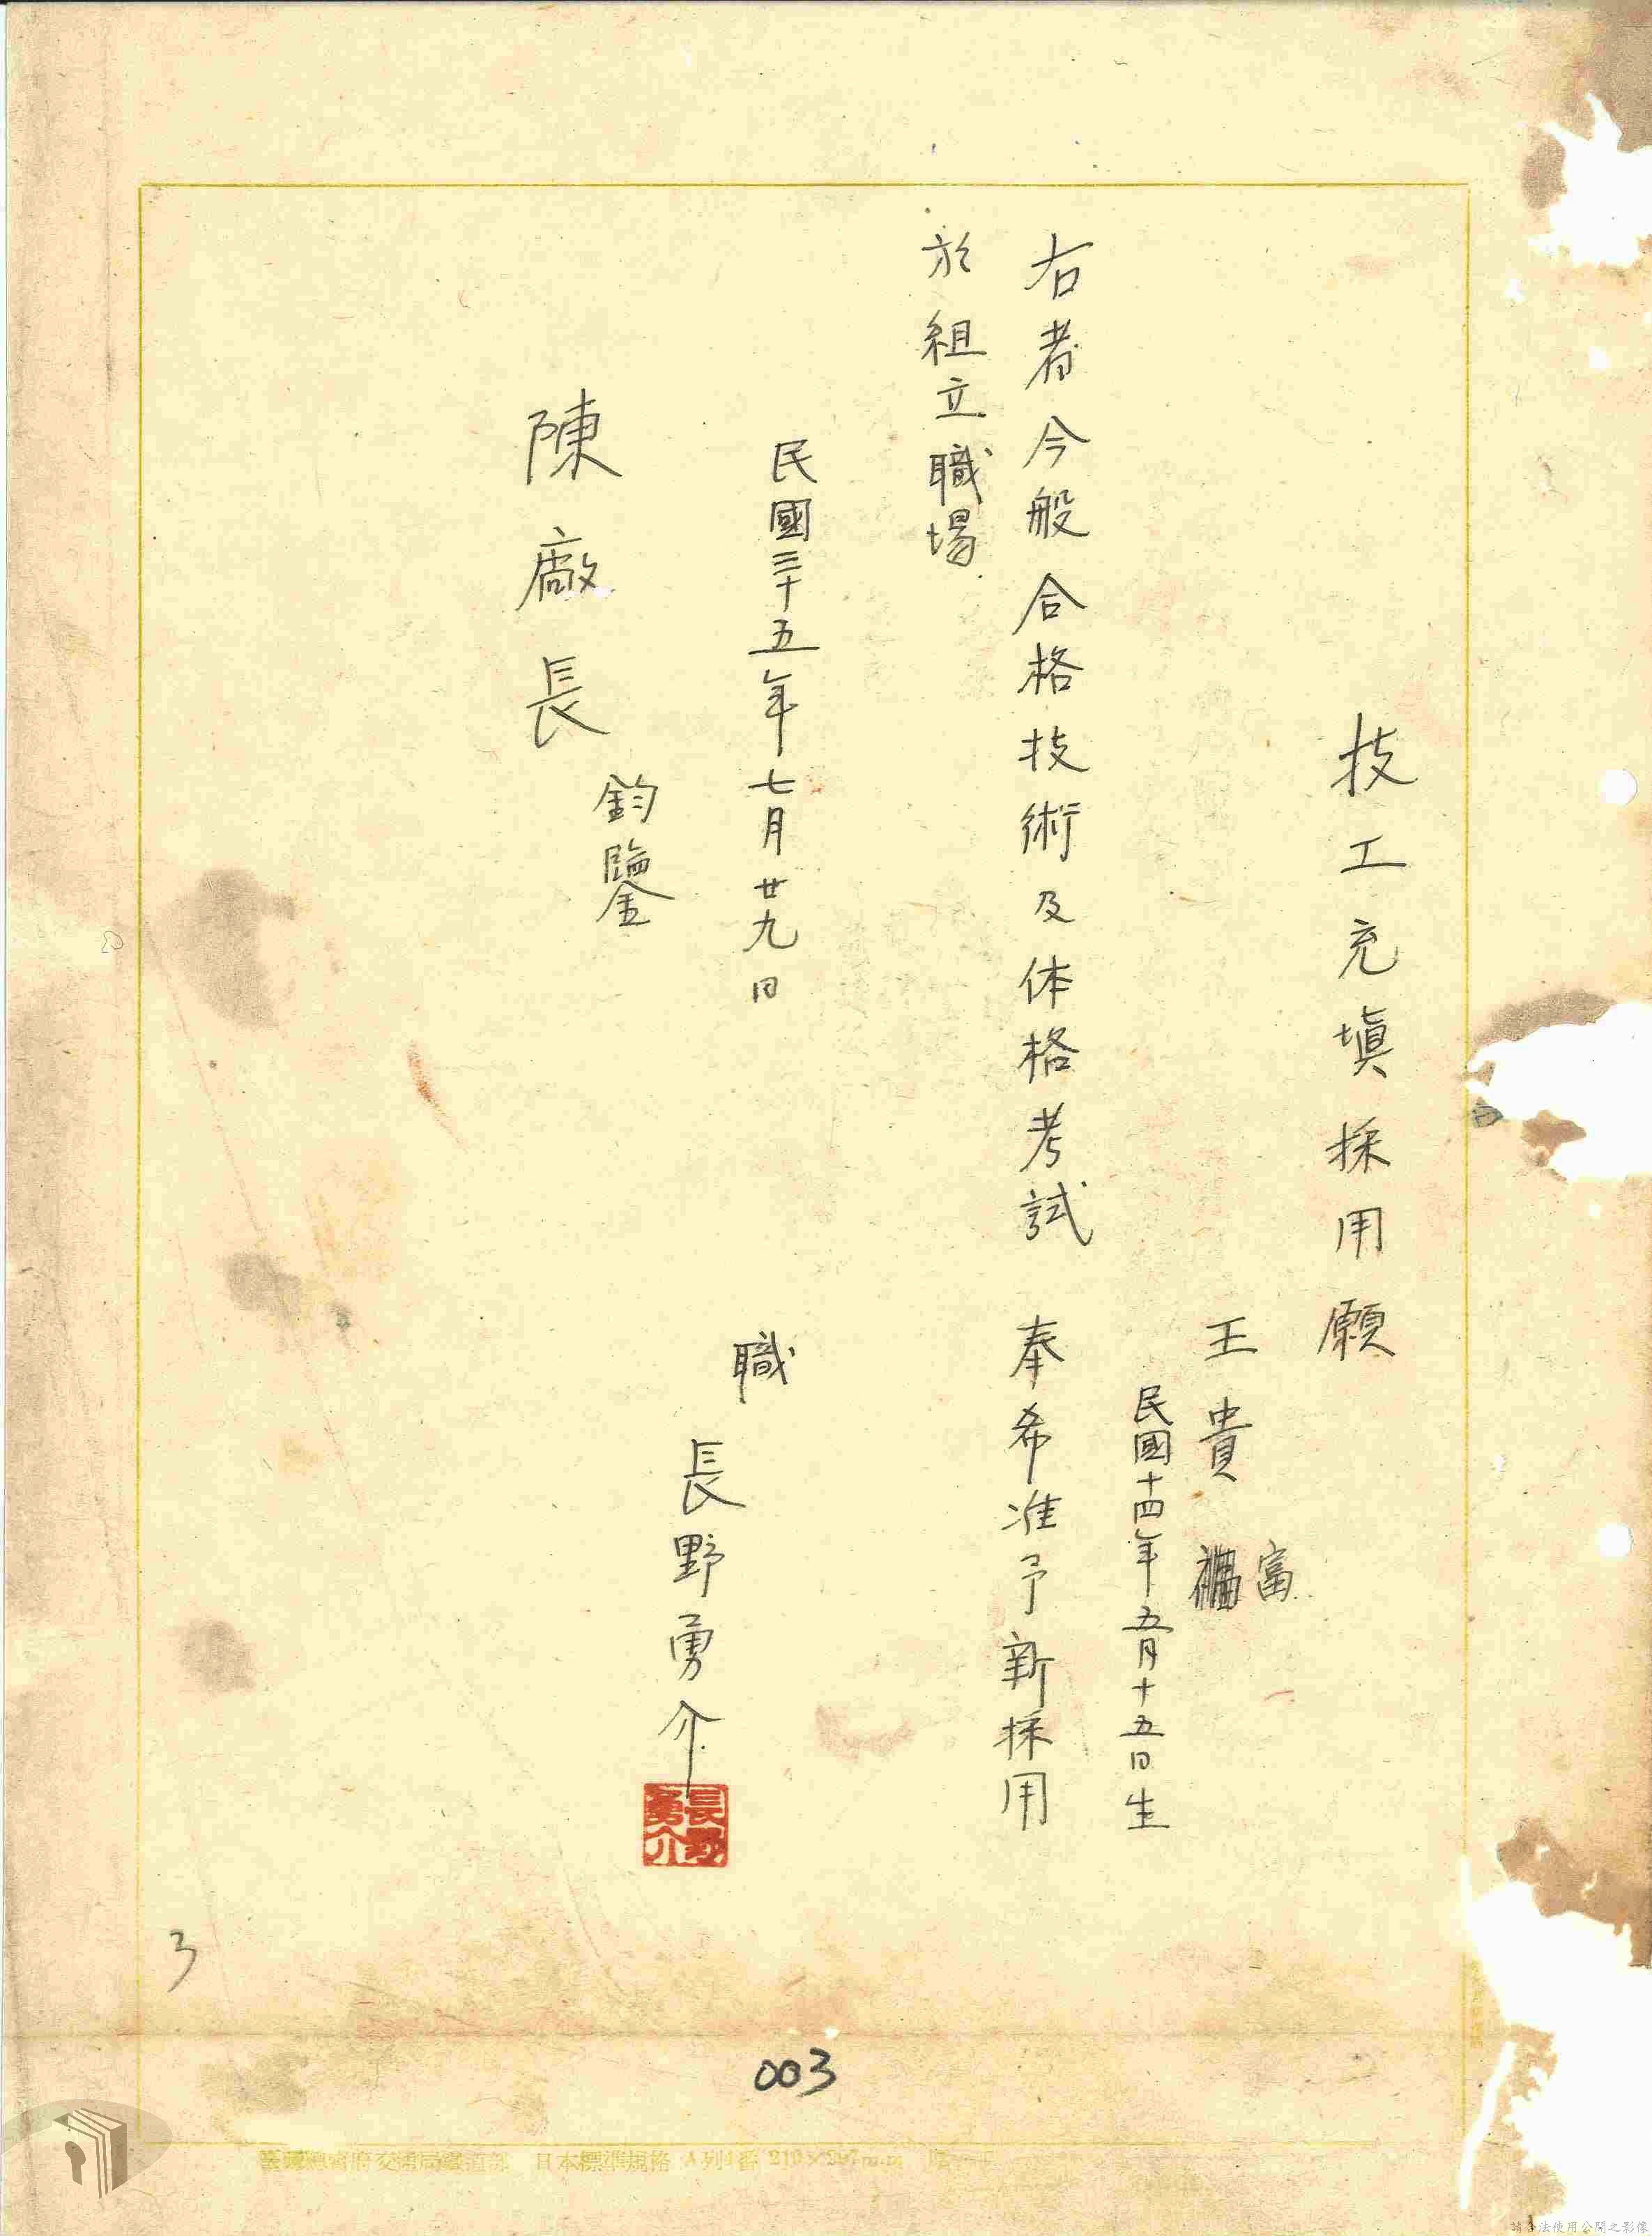 技工充填採用願
王貴富
民國十四年五月十五日生
右者今般合格技術及体格考試 奉希准予新採用
於組立職場
民國三十五年七月廿九日
職
長野勇介
長野勇介
陳廠長
鈞鑒
3
003
臺灣總督府交通局鐵道部 日本標準規格 A列4番 210×297m.m
請合法使用公開之影像